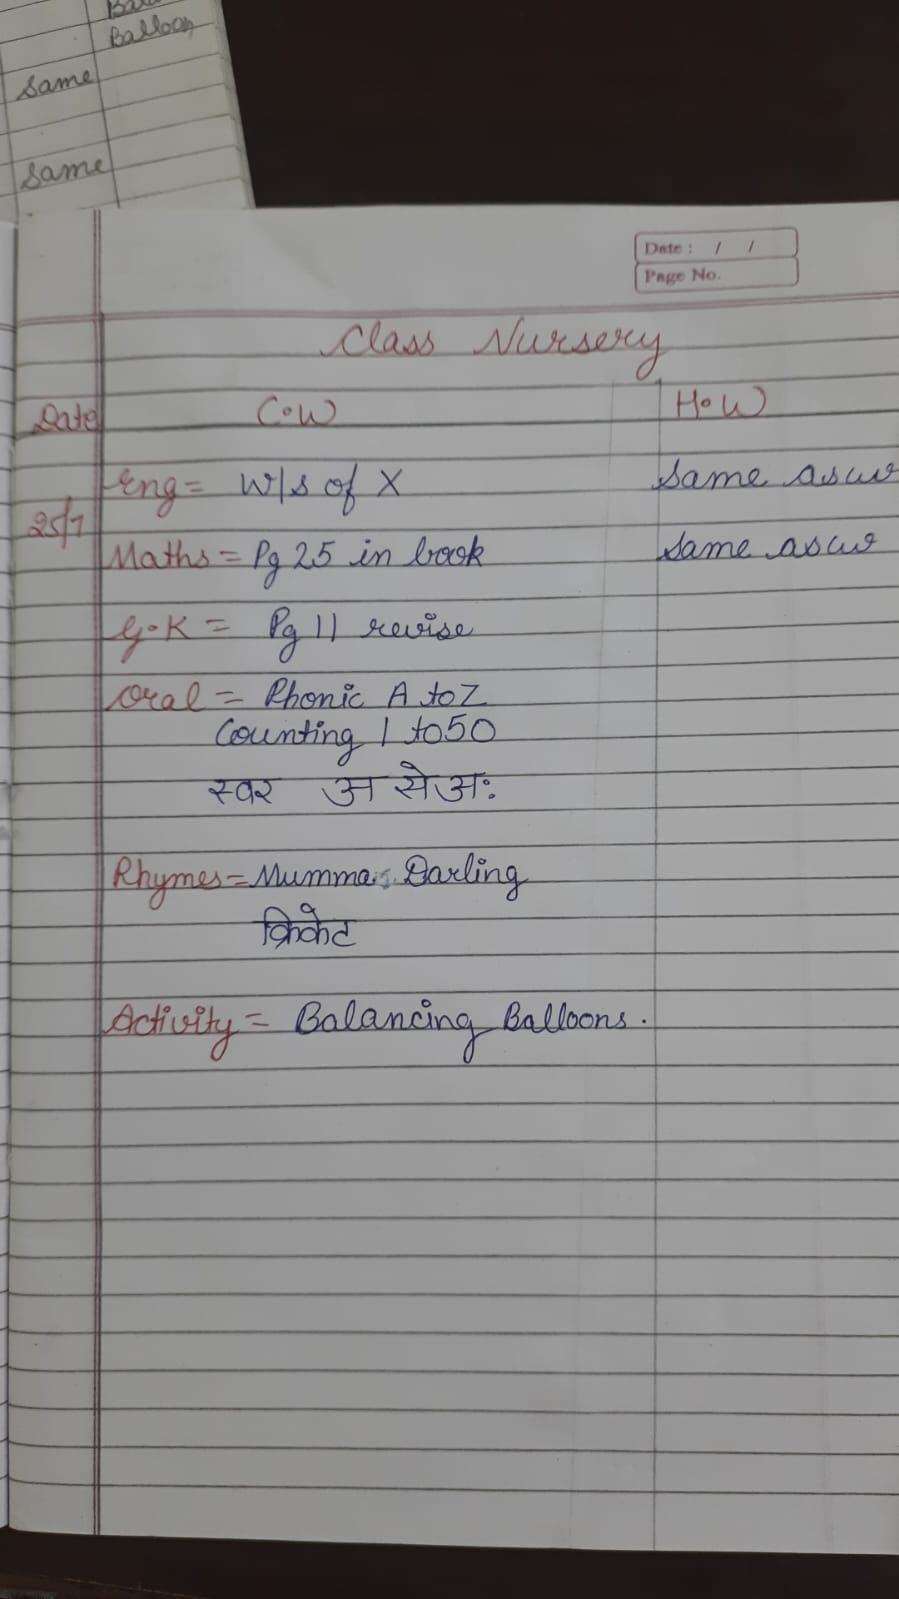 Balloon
Same
Same
Date: / /
Page No.
Class Nursery
Date C.W H.W
Eng = W/s of X Same as cw
25/7
Maths = Pg 25 in book Same as cw
G.K = Pg 11 revise
Oral = Phonic A to Z
Counting 1 to 50
स्वर अ से अः
Rhymes = Mumma Darling
क्रिकेट
Activity = Balancing Balloons.